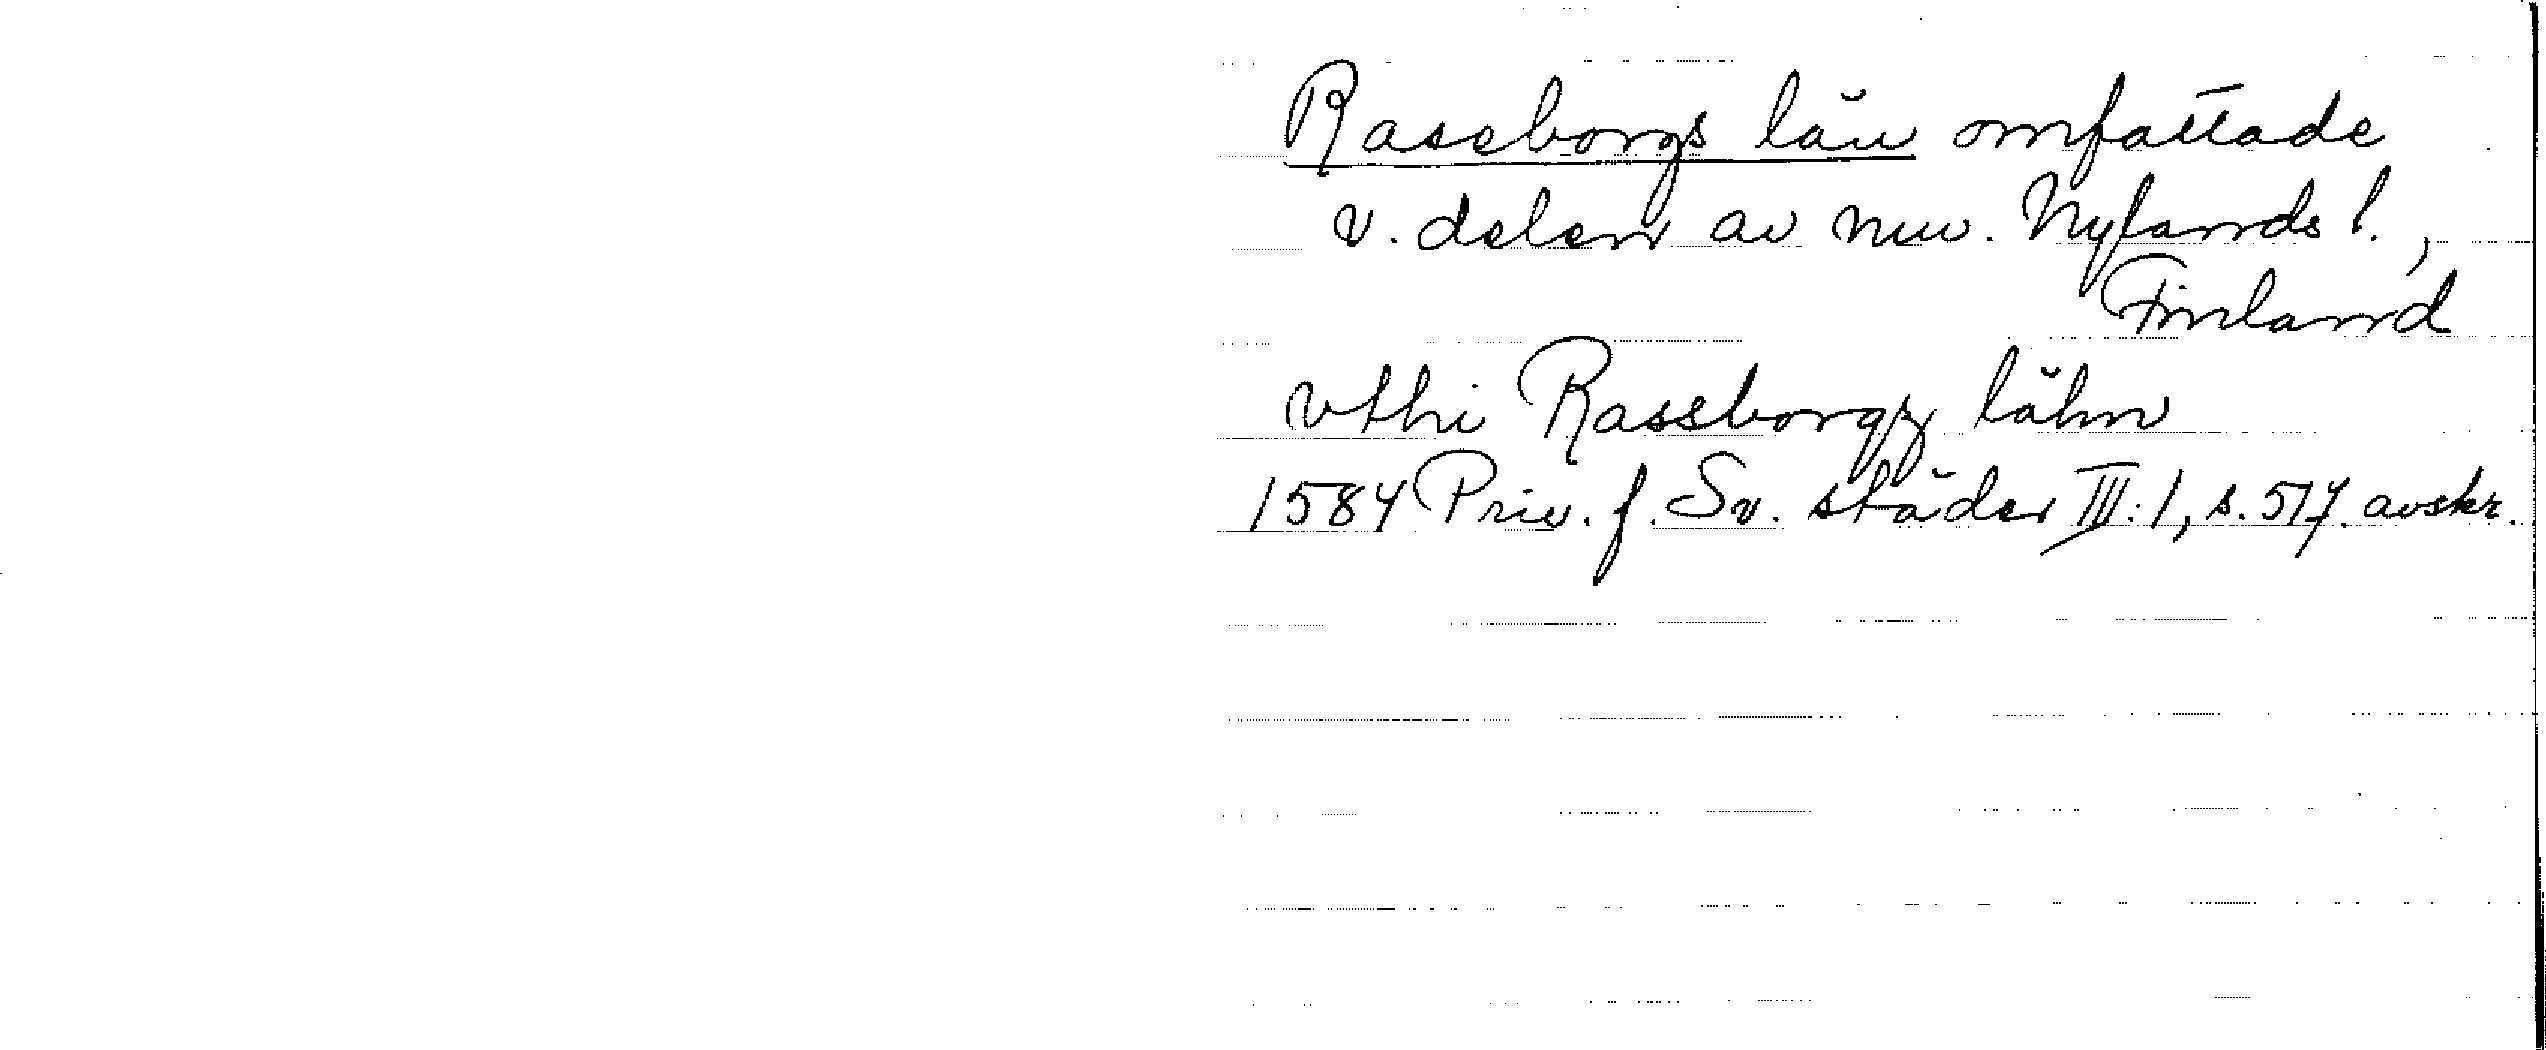 Raseborgs län omfattade
v. delen av nuv. Nylands l.,
Finland
vthi Rasseborgz lähn
1584 Priv. f. Sv. städer III:1, s. 517. avskr.